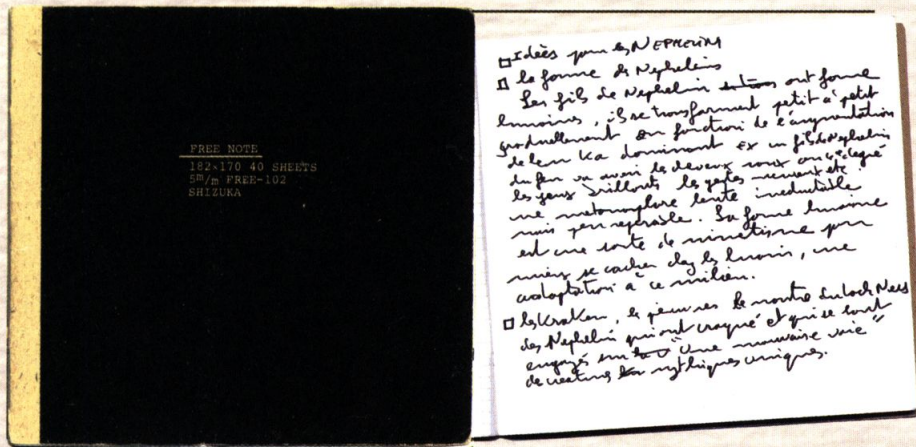 FREE NOTE
182×170 40 SHEETS
5m/m FREE-102
SHIZUKA
□ Idées pour les NEPHELIM
□ la forme des Nephelins
Les fils de Nephelin ont forme
humaines, ils se transforment petit à petit
graduellement en fonction de l'augmentation
de leur Ka dominant Ex un fils de Nephelin
du feu va avoir les cheveux roux
les yeux brillants les gestes nerveux etc.
une metamorphose lente ineluctable
mais peu reperable. La forme humaine
est une sorte de mimetisme pour
mieux se cacher chez les humains, une
adaptation à ce milieu.
□ les Kraken, le monstre du Loch Ness
des Nephelins qui ont craqué et qui se sont
engagés sur "une mauvaise voie"
de creatures mythiques uniques.